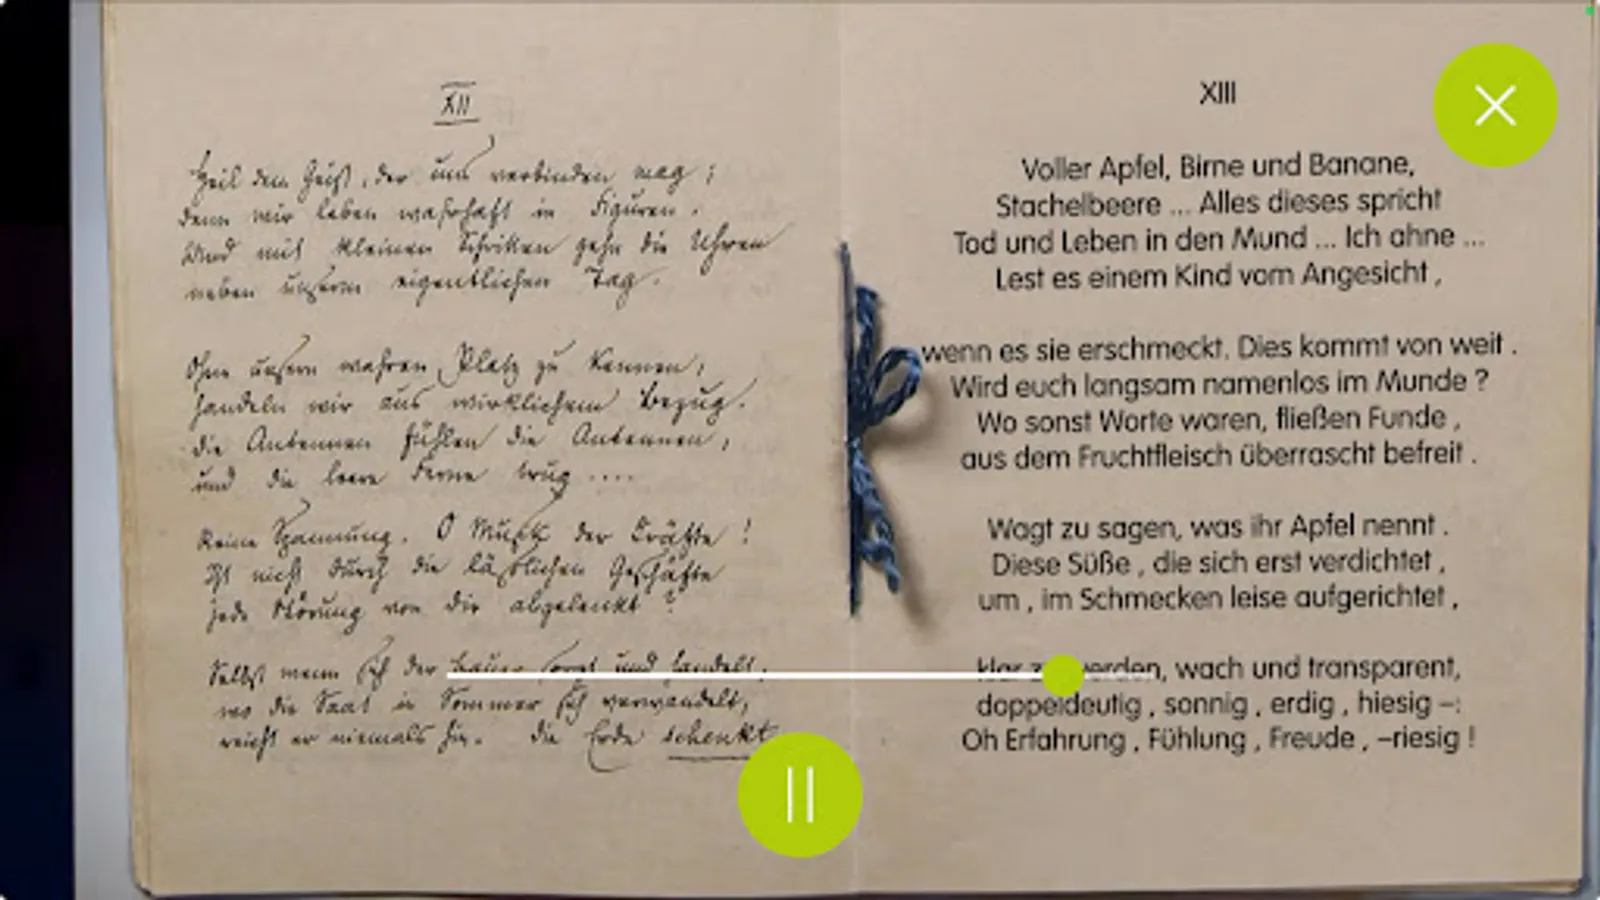 XII
Heil dem Geist, der uns verbinden mag;
denn wir leben wahrhaft in Figuren.
Und mit kleinen Schritten gehn die Uhren
neben unserm eigentlichen Tag.
Ohne unsern wahren Platz zu kennen,
handeln wir aus wirklichem Bezug.
die Antennen fühlen die Antennen,
und die leere Ferne trug ....
Reine Spannung. O Musik der Kräfte!
Ist nicht durch die läßlichen Geschäfte
jede Störung von dir abgelenkt?
Selbst wenn sich der Bauer sorgt und handelt,
wo die Saat in Sommer sich verwandelt,
reicht er niemals hin. die Erde schenkt
XIII
Voller Apfel, Birne und Banane,
Stachelbeere ... Alles dieses spricht
Tod und Leben in den Mund ... Ich ahne ...
Lest es einem Kind vom Angesicht ,
wenn es sie erschmeckt. Dies kommt von weit .
Wird euch langsam namenlos im Munde ?
Wo sonst Worte waren, fließen Funde ,
aus dem Fruchtfleisch überrascht befreit .
Wagt zu sagen, was ihr Apfel nennt .
Diese Süße , die sich erst verdichtet ,
um , im Schmecken leise aufgerichtet ,
klar zu werden, wach und transparent,
doppeldeutig , sonnig , erdig , hiesig –:
Oh Erfahrung , Fühlung , Freude , –riesig !